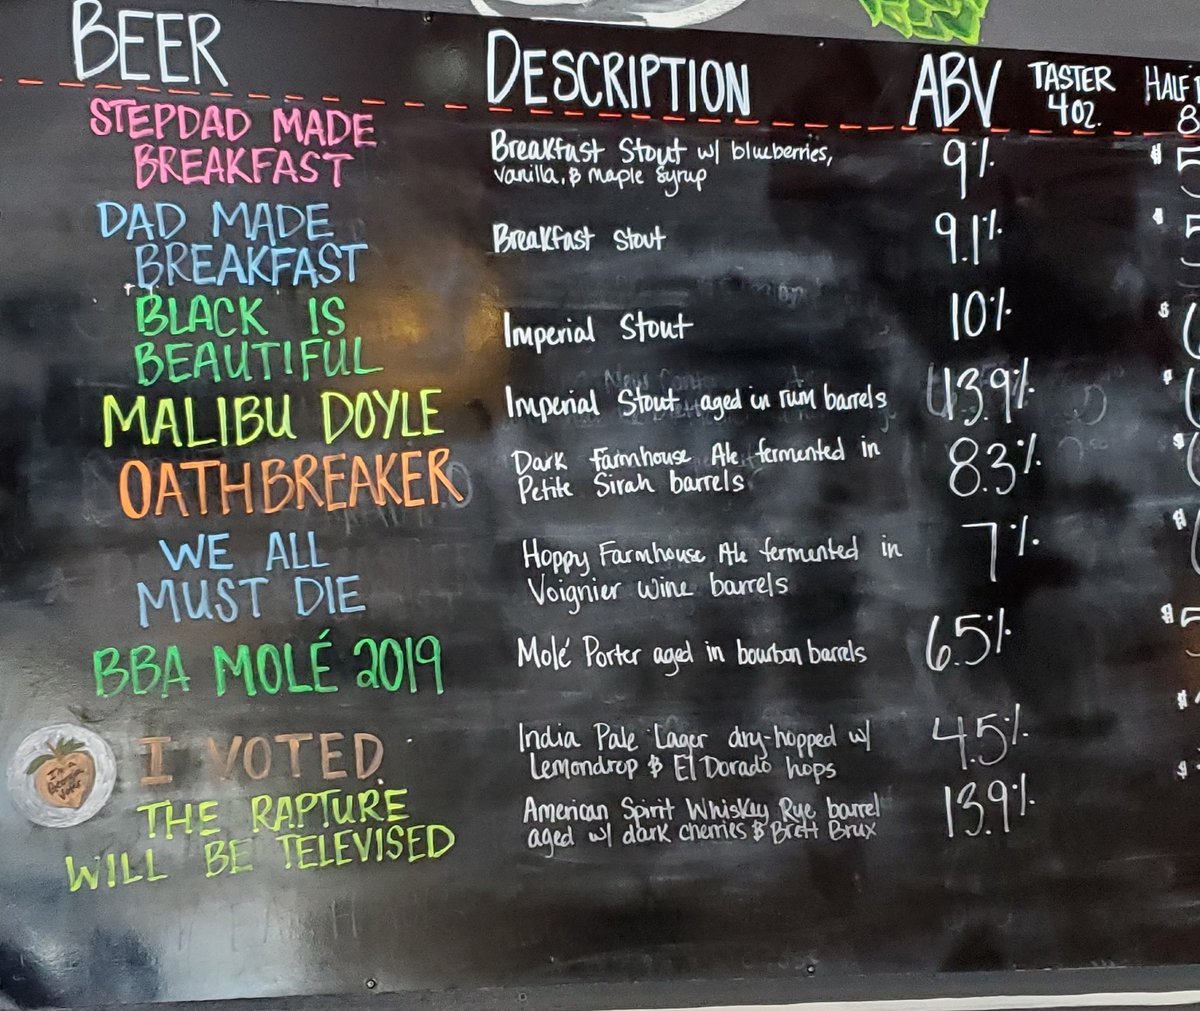 BEER DESCRIPTION ABV TASTER 4oz. HALF
STEPDAD MADE BREAKFAST Breakfast Stout w/ blueberries, 9% $5
vanilla, & Maple Syrup
DAD MADE BREAKFAST Breakfast Stout 9.1% $5
BLACK IS BEAUTIFUL Imperial Stout 10% $
MALIBU DOYLE Imperial Stout aged in rum barrels 13.9% $
OATHBREAKER Dark Farmhouse Ale fermented in 8.3% $
Petite Sirah barrels
WE ALL MUST DIE Hoppy Farmhouse Ale fermented in 7% $
Voignier Wine barrels
BBA MOLÉ 2019 Molé Porter aged in bourbon barrels 6.5% $5
I VOTED India Pale Lager dry-hopped w/ 4.5% $
Lemondrop & El Dorado hops
THE RAPTURE WILL BE TELEVISED American Spirit Whiskey Rye barrel 13.9% $
aged w/ dark cherries & Brett Brux
I'm a Georgia Voter